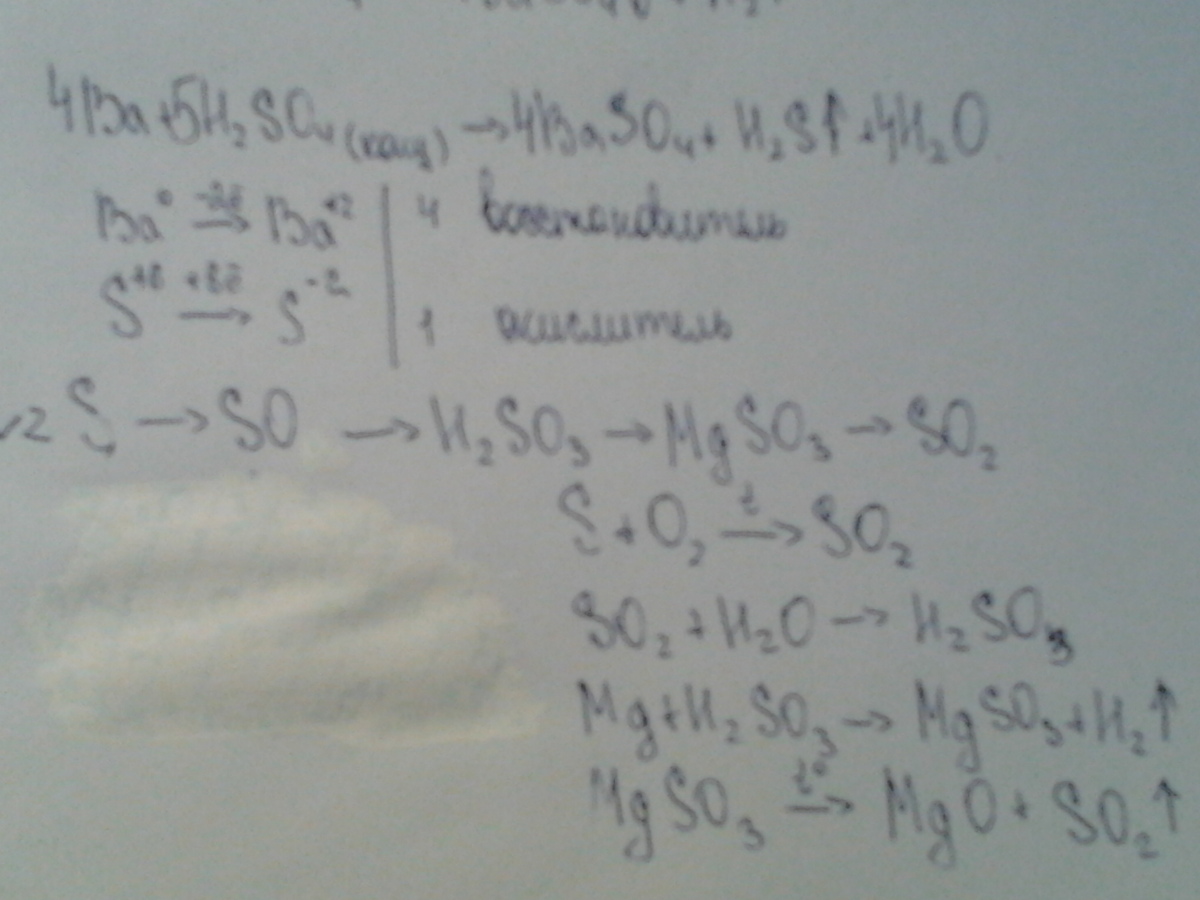 4Ba+5H₂SO₄(конц) → 4BaSO₄ + H₂S↑ + 4H₂O
Ba⁰ -2ē→ Ba⁺² | 4 восстановитель
S⁺⁶ +8ē→ S⁻² | 1 окислитель
√2 S → SO → H₂SO₃ → MgSO₃ → SO₂
S + O₂ t→ SO₂
SO₂ + H₂O → H₂SO₃
Mg + H₂SO₃ → MgSO₃ + H₂↑
MgSO₃ t°→ MgO + SO₂↑